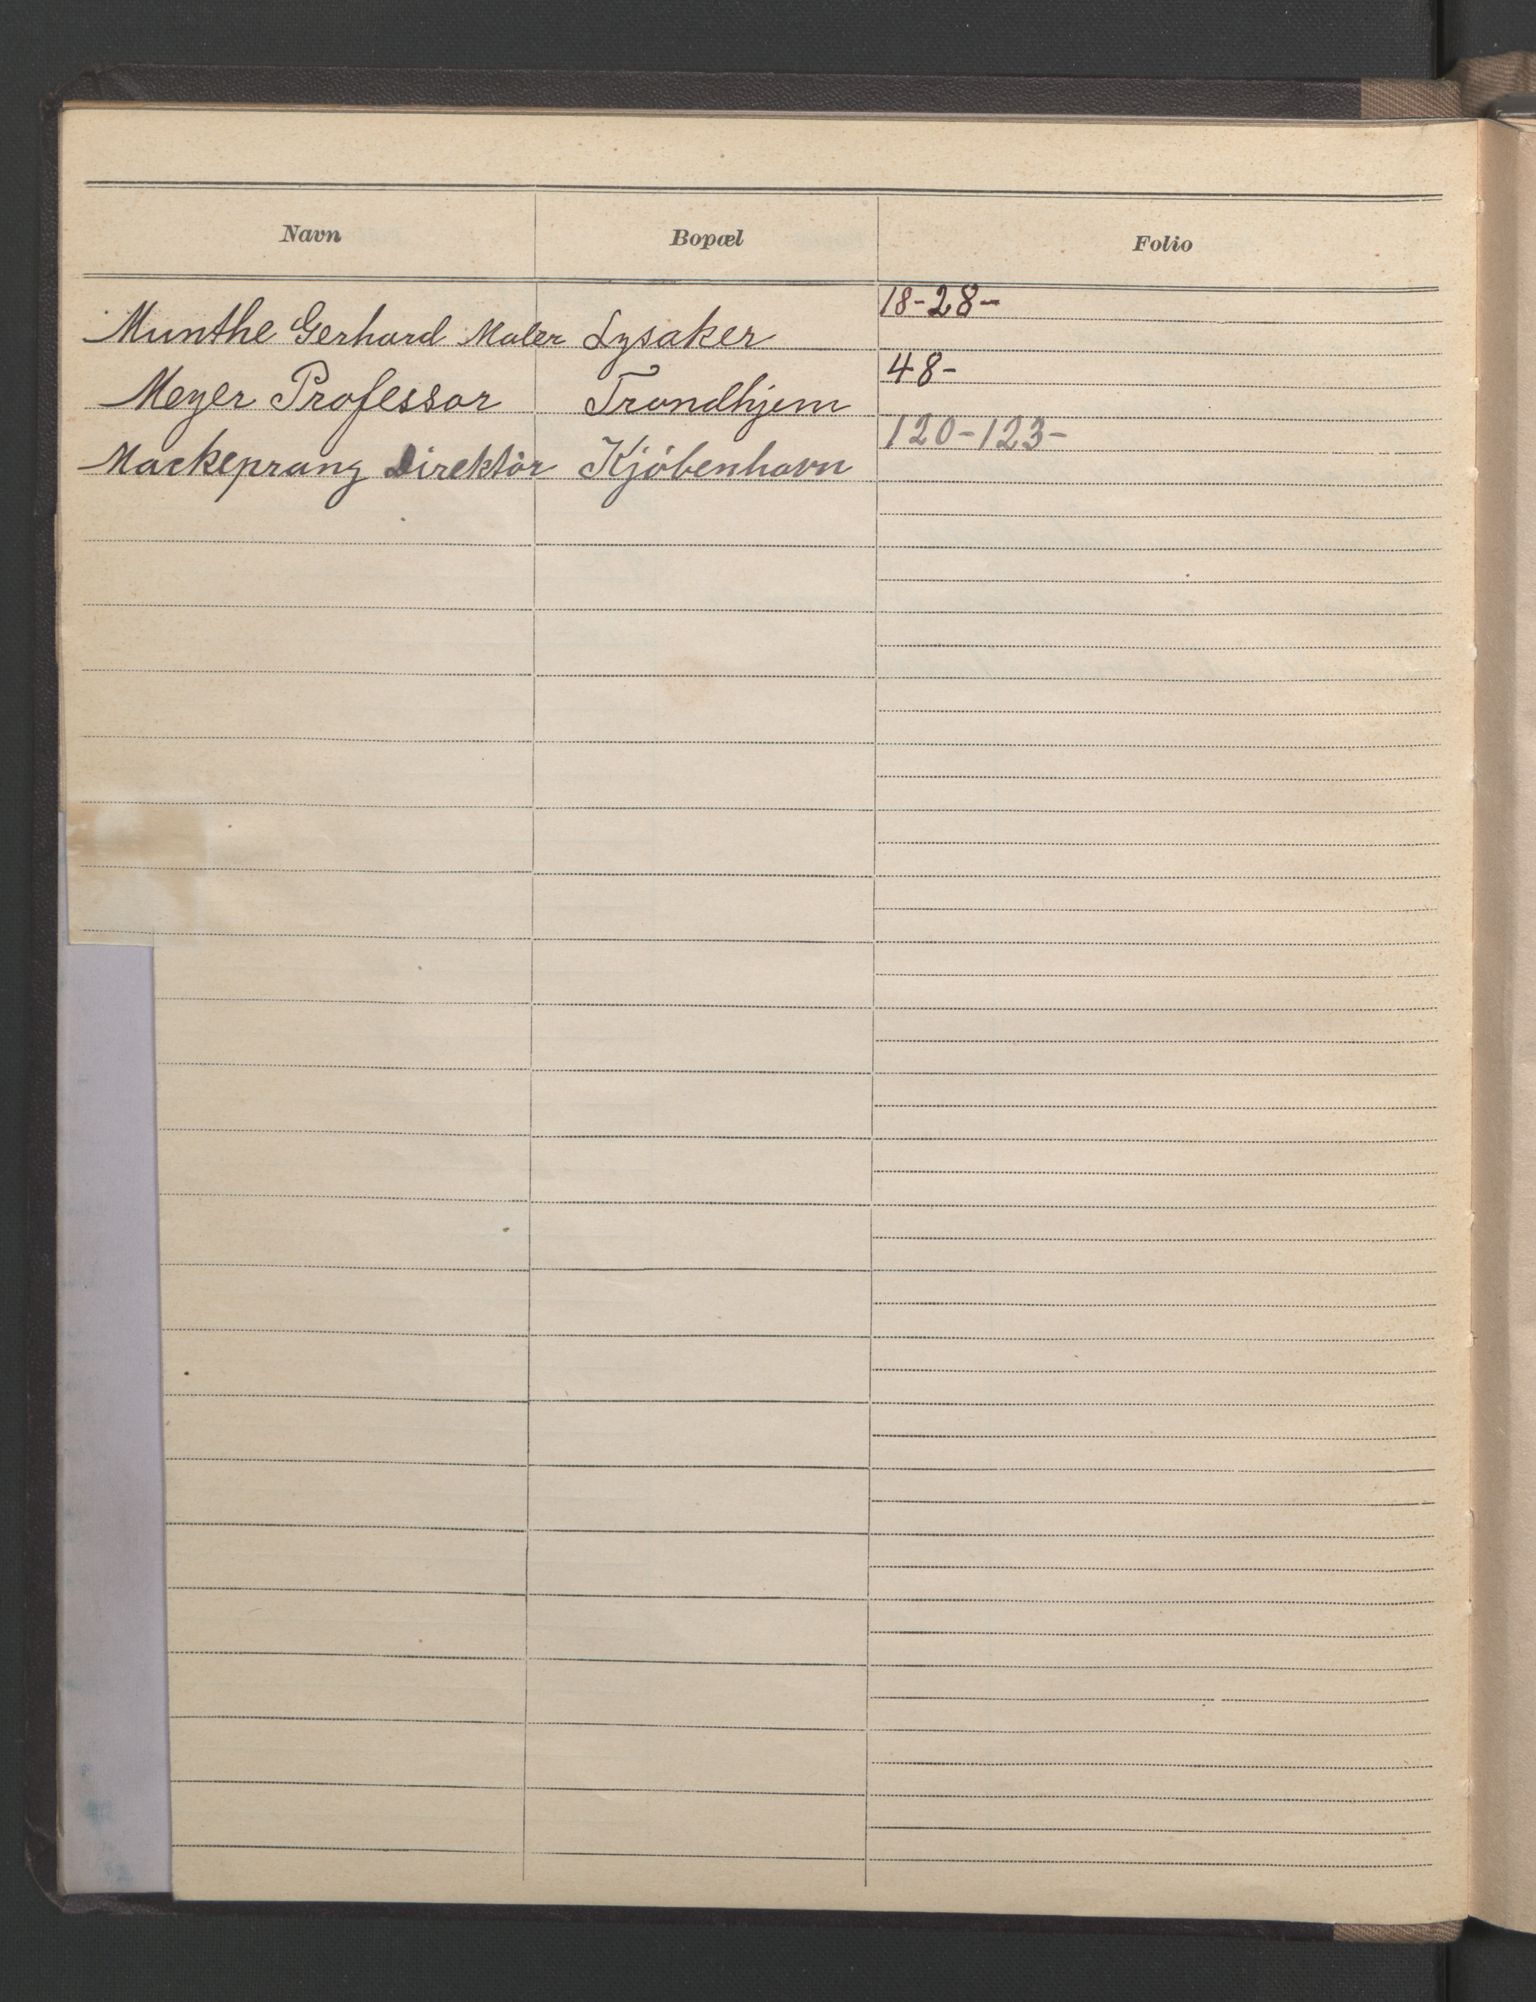 Navn Bopæl Folio
Munthe Gerhard Maler Lysaker 18-28-
Meyer Professor Trondhjem 48-
Mackeprang Direktör Kjöbenhavn 120-123-